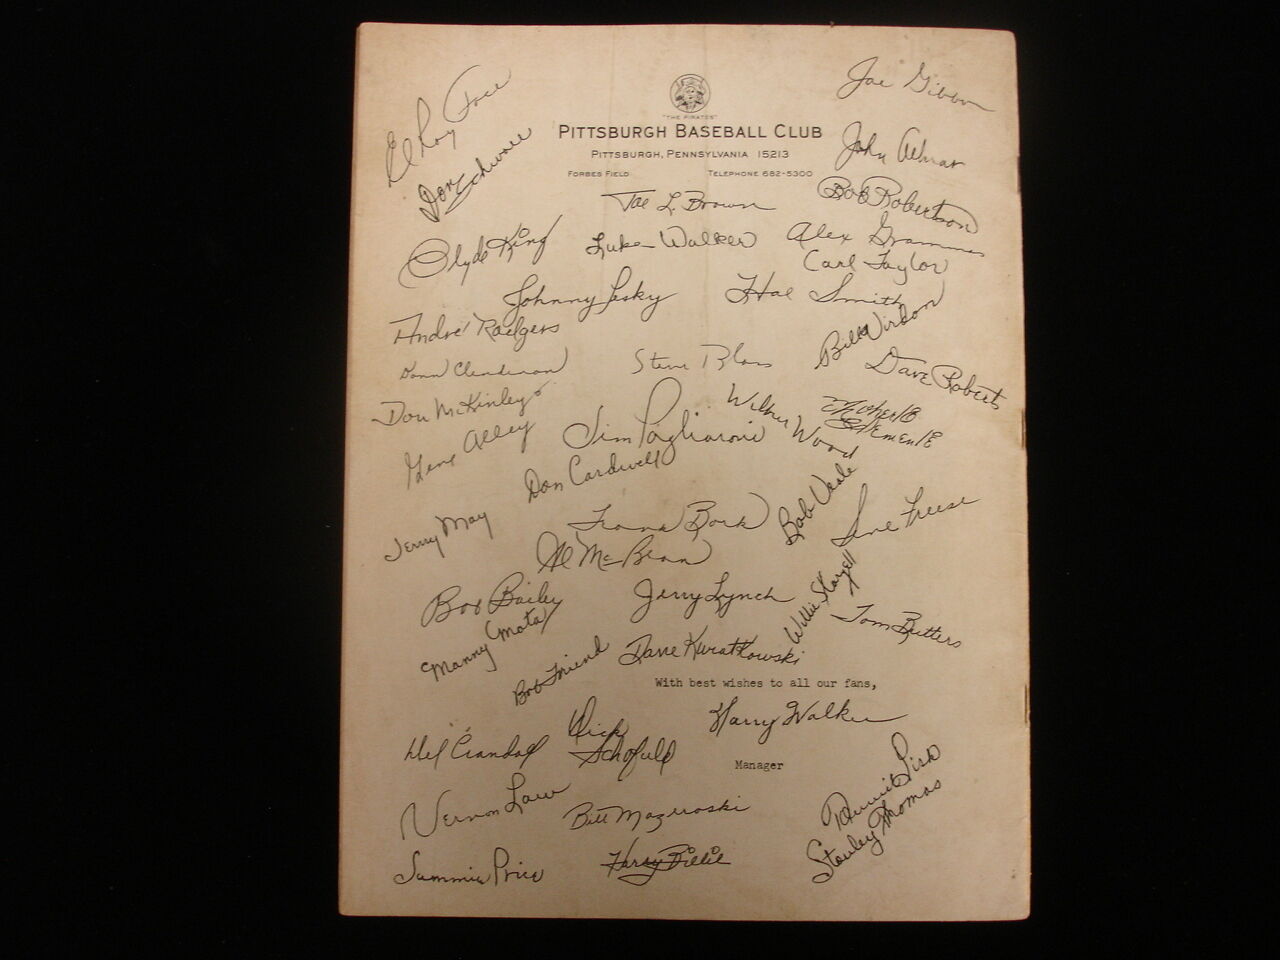 ElRoy Face
Joe Gibbon
"THE PIRATES"
PITTSBURGH BASEBALL CLUB
PITTSBURGH, PENNSYLVANIA 15213
FORBES FIELD TELEPHONE 682-5300
Don Schwall
John Gelnar
Joe L. Brown
Bob Robertson
Clyde King
Luke Walker
Alex Grammas
Carl Taylor
Johnny Pesky
Hal Smith
André Rodgers
Bill Virdon
Donn Clendenon
Steve Blass
Dave Roberts
Don McKinley
Wilbur Wood
Roberto Clemente
Gene Alley
Jim Pagliaroni
Don Cardwell
Bob Veale
Jerry May
Frank Bork
Gene Freese
Al McBean
Bob Bailey
Jerry Lynch
Willie Stargell
Manny Mota
Tom Butters
Bob Friend
Dave Kwiatkowski
With best wishes to all our fans,
Harry Walker
Manager
Del Crandall
Dick Schofield
Vernon Law
Bill Mazeroski
Tommie Sisk
Stanley Thomas
Sammie Price